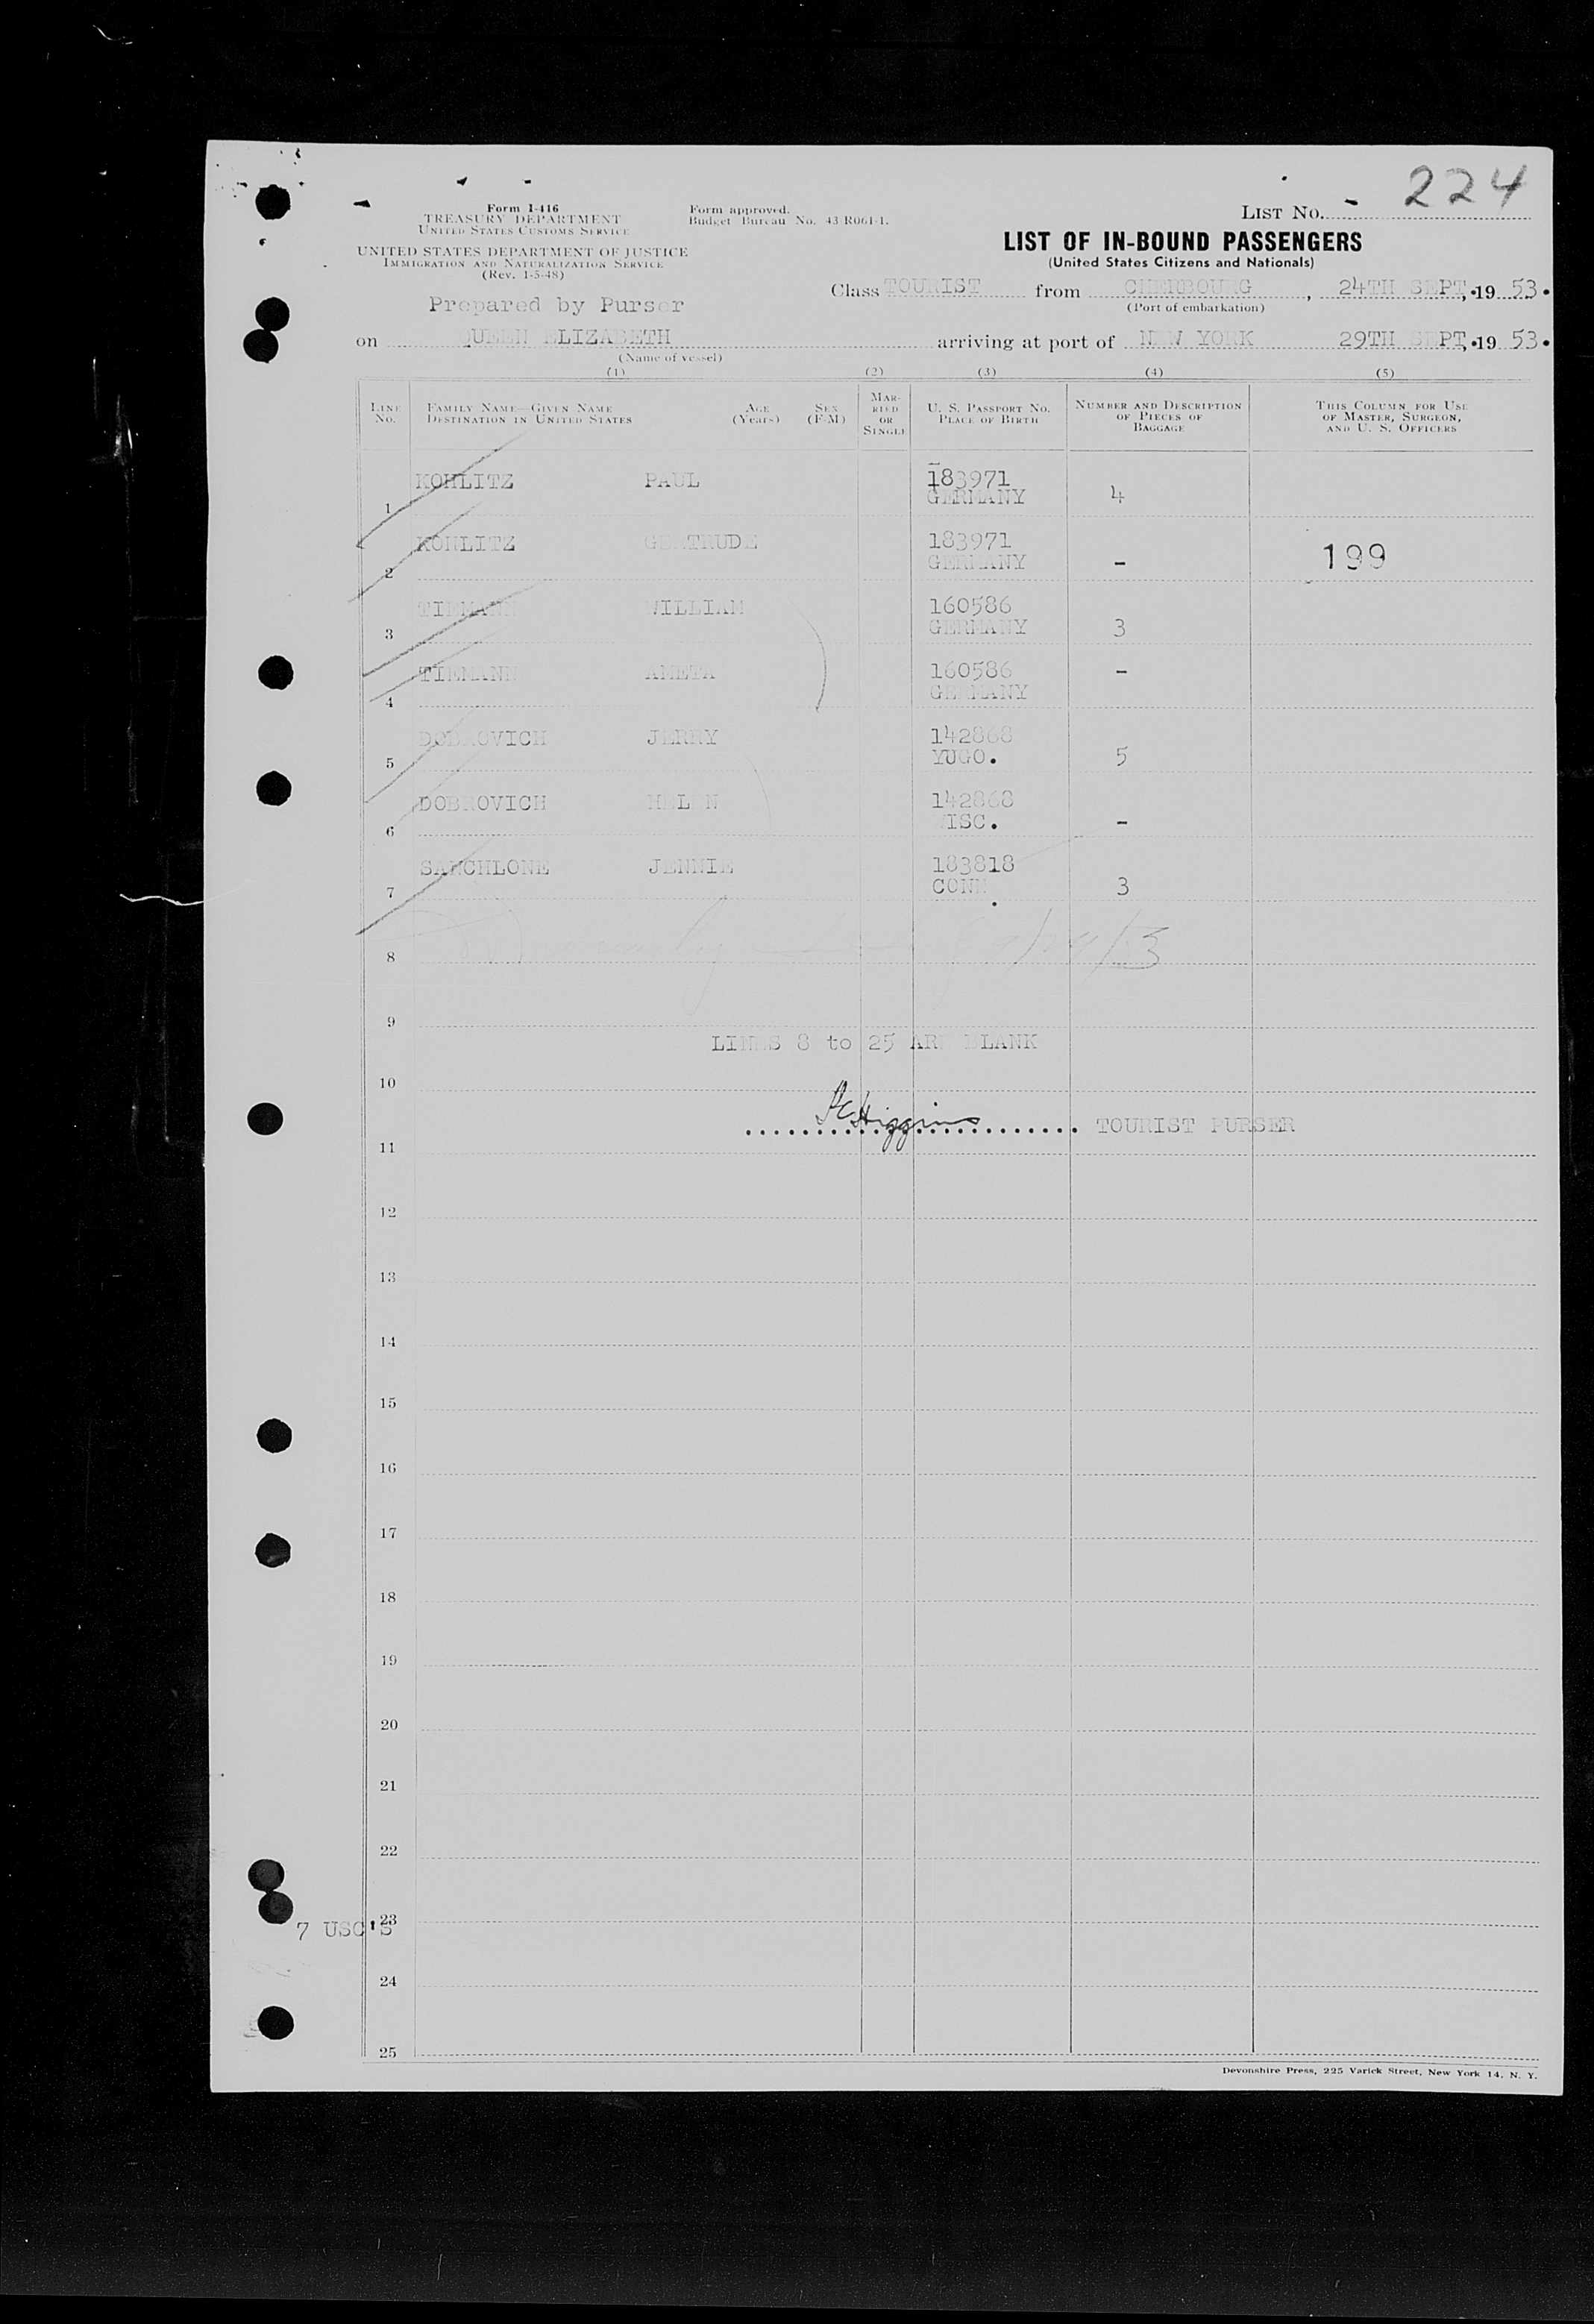 224
LIST NO. -
Form I-416
TREASURY DEPARTMENT
UNITED STATES CUSTOMS SERVICE
Form approved.
Budget Bureau No. 43-R061-1.
UNITED STATES DEPARTMENT OF JUSTICE
IMMIGRATION AND NATURALIZATION SERVICE
(Rev. 1-5-48)
LIST OF IN-BOUND PASSENGERS
(United States Citizens and Nationals)
Prepared by Purser
Class TOURIST from CHERBOURG, 24TH SEPT, 19 53.
(Port of embarkation)
on QUEEN ELIZABETH arriving at port of NEW YORK 29TH SEPT, 19 53.
(Name of vessel)
(1) (2) (3) (4) (5)
LINE NO. FAMILY NAME—GIVEN NAME DESTINATION IN UNITED STATES AGE (Years) SEX (F-M) MARRIED OR SINGLE U. S. PASSPORT NO. PLACE OF BIRTH NUMBER AND DESCRIPTION OF PIECES OF BAGGAGE THIS COLUMN FOR USE OF MASTER, SURGEON, AND U. S. OFFICERS
KOHLITZ PAUL 183971
1 GERMANY 4
KOHLITZ GERTRUDE 183971
2 GERMANY - 199
TIEMANN WILLIAM 160586
3 GERMANY 3
TIEMANN AMETA 160586 -
4 GERMANY
DOBROVICH JERRY 142868
5 YUGO. 5
DOBROVICH HELEN 142868
6 WISC. -
SANCHLONE JENNIE 183818
7 CONN. 3
8
9
LINES 8 to 25 ARE BLANK
10
Higgins TOURIST PURSER
11
12
13
14
15
16
17
18
19
20
21
22
7 USC'S 23
24
25
Devonshire Press, 225 Varick Street, New York 14, N. Y.